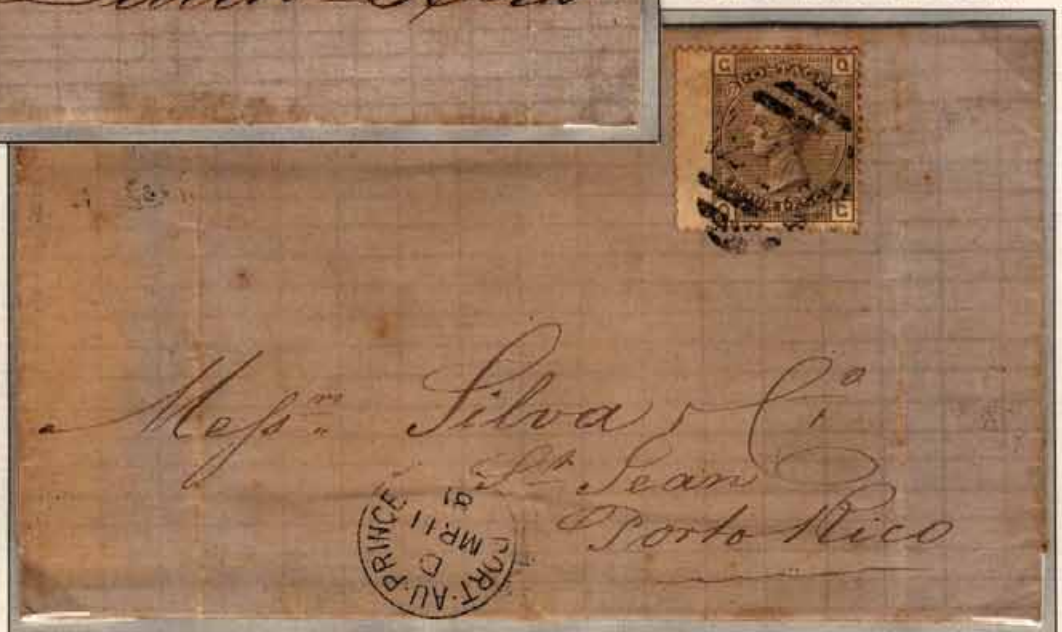 G POSTAGE Q
Q G
Messrs Silva y Ca
St Jean
Porto Rico
PORT-AU-PRINCE
D
MR 11